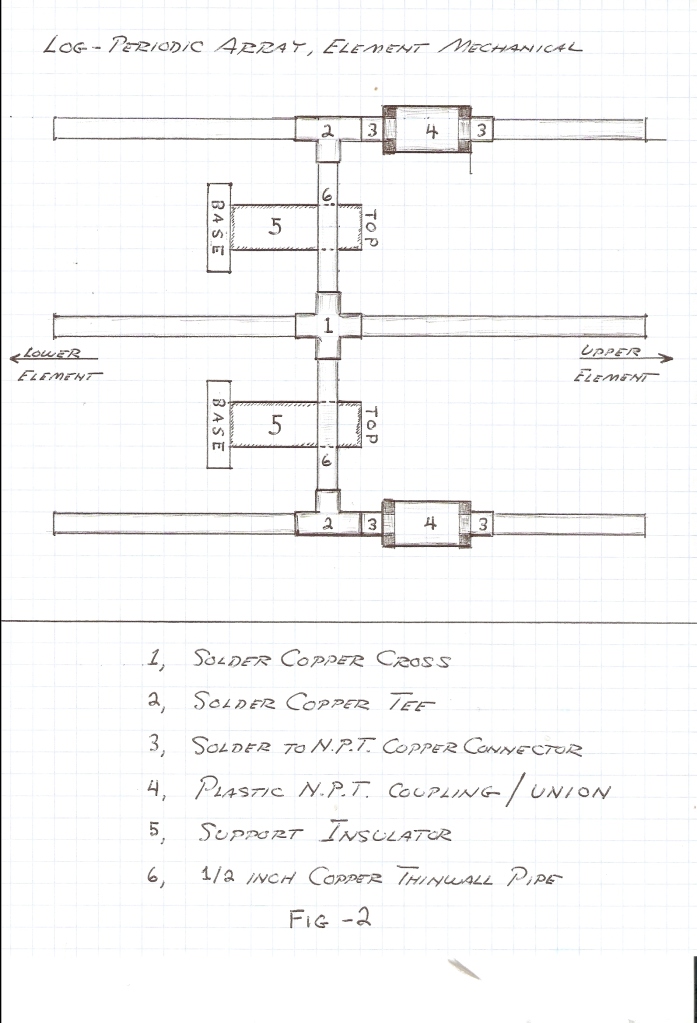 LOG-PERIODIC ARRAY, ELEMENT MECHANICAL
2 3 4 3
6
BASE 5 TOP
1
LOWER ELEMENT
UPPER ELEMENT
BASE 5 TOP
6
2 3 4 3
1, SOLDER COPPER CROSS
2, SOLDER COPPER TEE
3, SOLDER TO N.P.T. COPPER CONNECTOR
4, PLASTIC N.P.T. COUPLING / UNION
5, SUPPORT INSULATOR
6, 1/2 INCH COPPER THINWALL PIPE
FIG -2